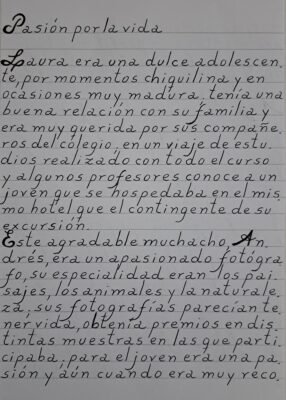 Pasión por la vida
Laura era una dulce adolescen.
te, por momentos chiquilina y en
ocasiones muy madura, tenía una
buena relación con su familia y
era muy querida por sus compañe.
ros del colegio, en un viaje de estu.
dios realizado con todo el curso
y algunos profesores conoce a un
joven que se hospedaba en el mis
mo hotel que el contingente de su
excursión.
Este agradable muchacho, An.
drés, era un apasionado fotógra
fo, su especialidad eran los pai.
sajes, los animales y la naturale.
za, sus fotografías parecían te.
ner vida, obtenía premios en dis.
tintas muestras en las que parti.
cipaba, para el joven era una pa.
sión y aún cuando era muy reco.